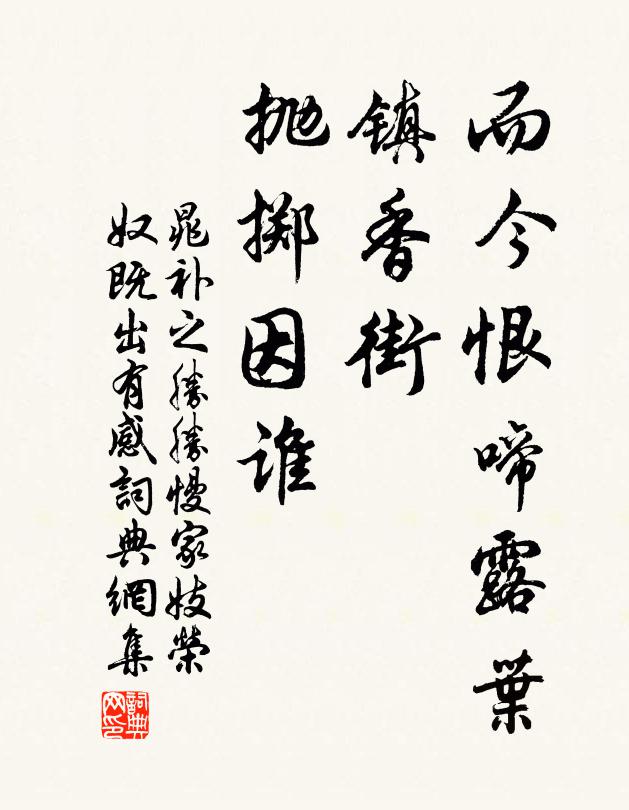 而今恨啼露葉
镇香街
抛掷因谁
晁补之勝勝慢家妓榮
奴既出有感詞典網集
詞典
网印